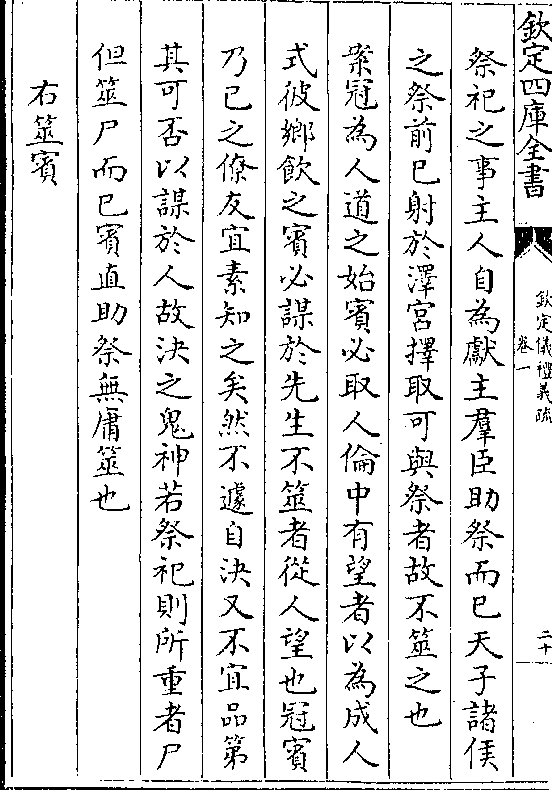 欽定四庫全書
欽定儀禮義疏
卷一
二十
祭祀之事主人自為獻主羣臣助祭而已天子諸侯
之祭前已射於澤宮擇取可與祭者故不筮之也
案冠為人道之始賓必取人倫中有望者以為成人
式彼鄉飲之賓必謀於先生不筮者從人望也冠賓
乃已之僚友宜素知之矣然不遽自決又不宜品第
其可否以謀於人故決之鬼神若祭祀則所重者尸
但筮尸而已賓直助祭無庸筮也
右筮賓